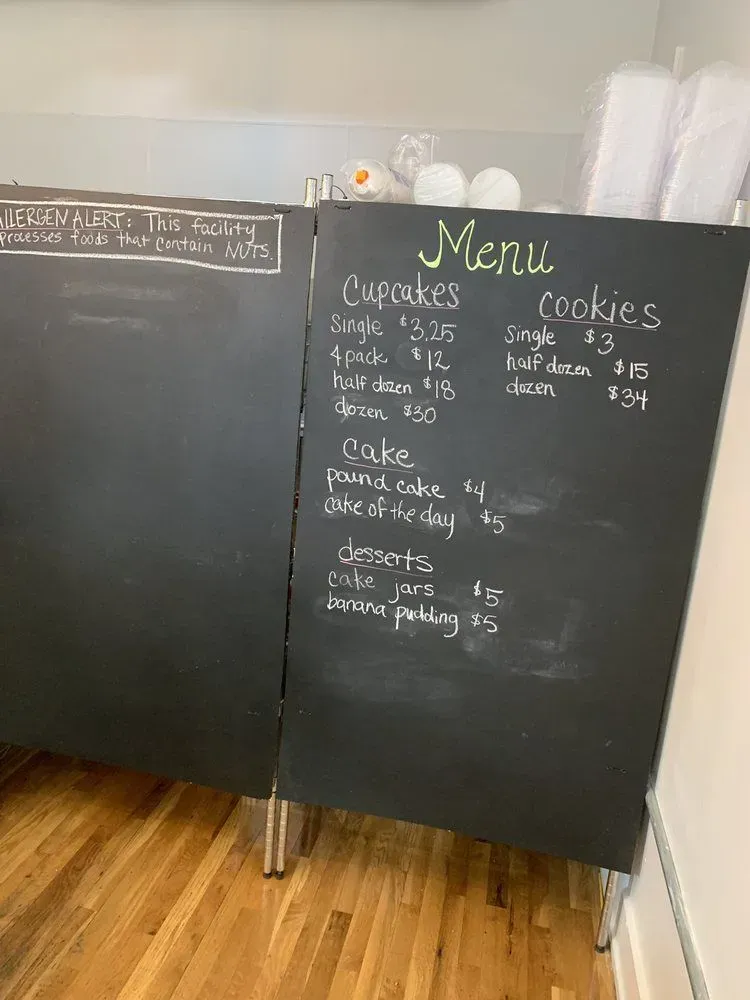 ALLERGEN ALERT: This facility
Processes foods that contain NUTS.
Menu
Cupcakes
Single $3.25
4 pack $12
half dozen $18
dozen $30
cookies
Single $3
half dozen $15
dozen $34
cake
pound cake $4
cake of the day $5
desserts
cake jars $5
banana pudding $5